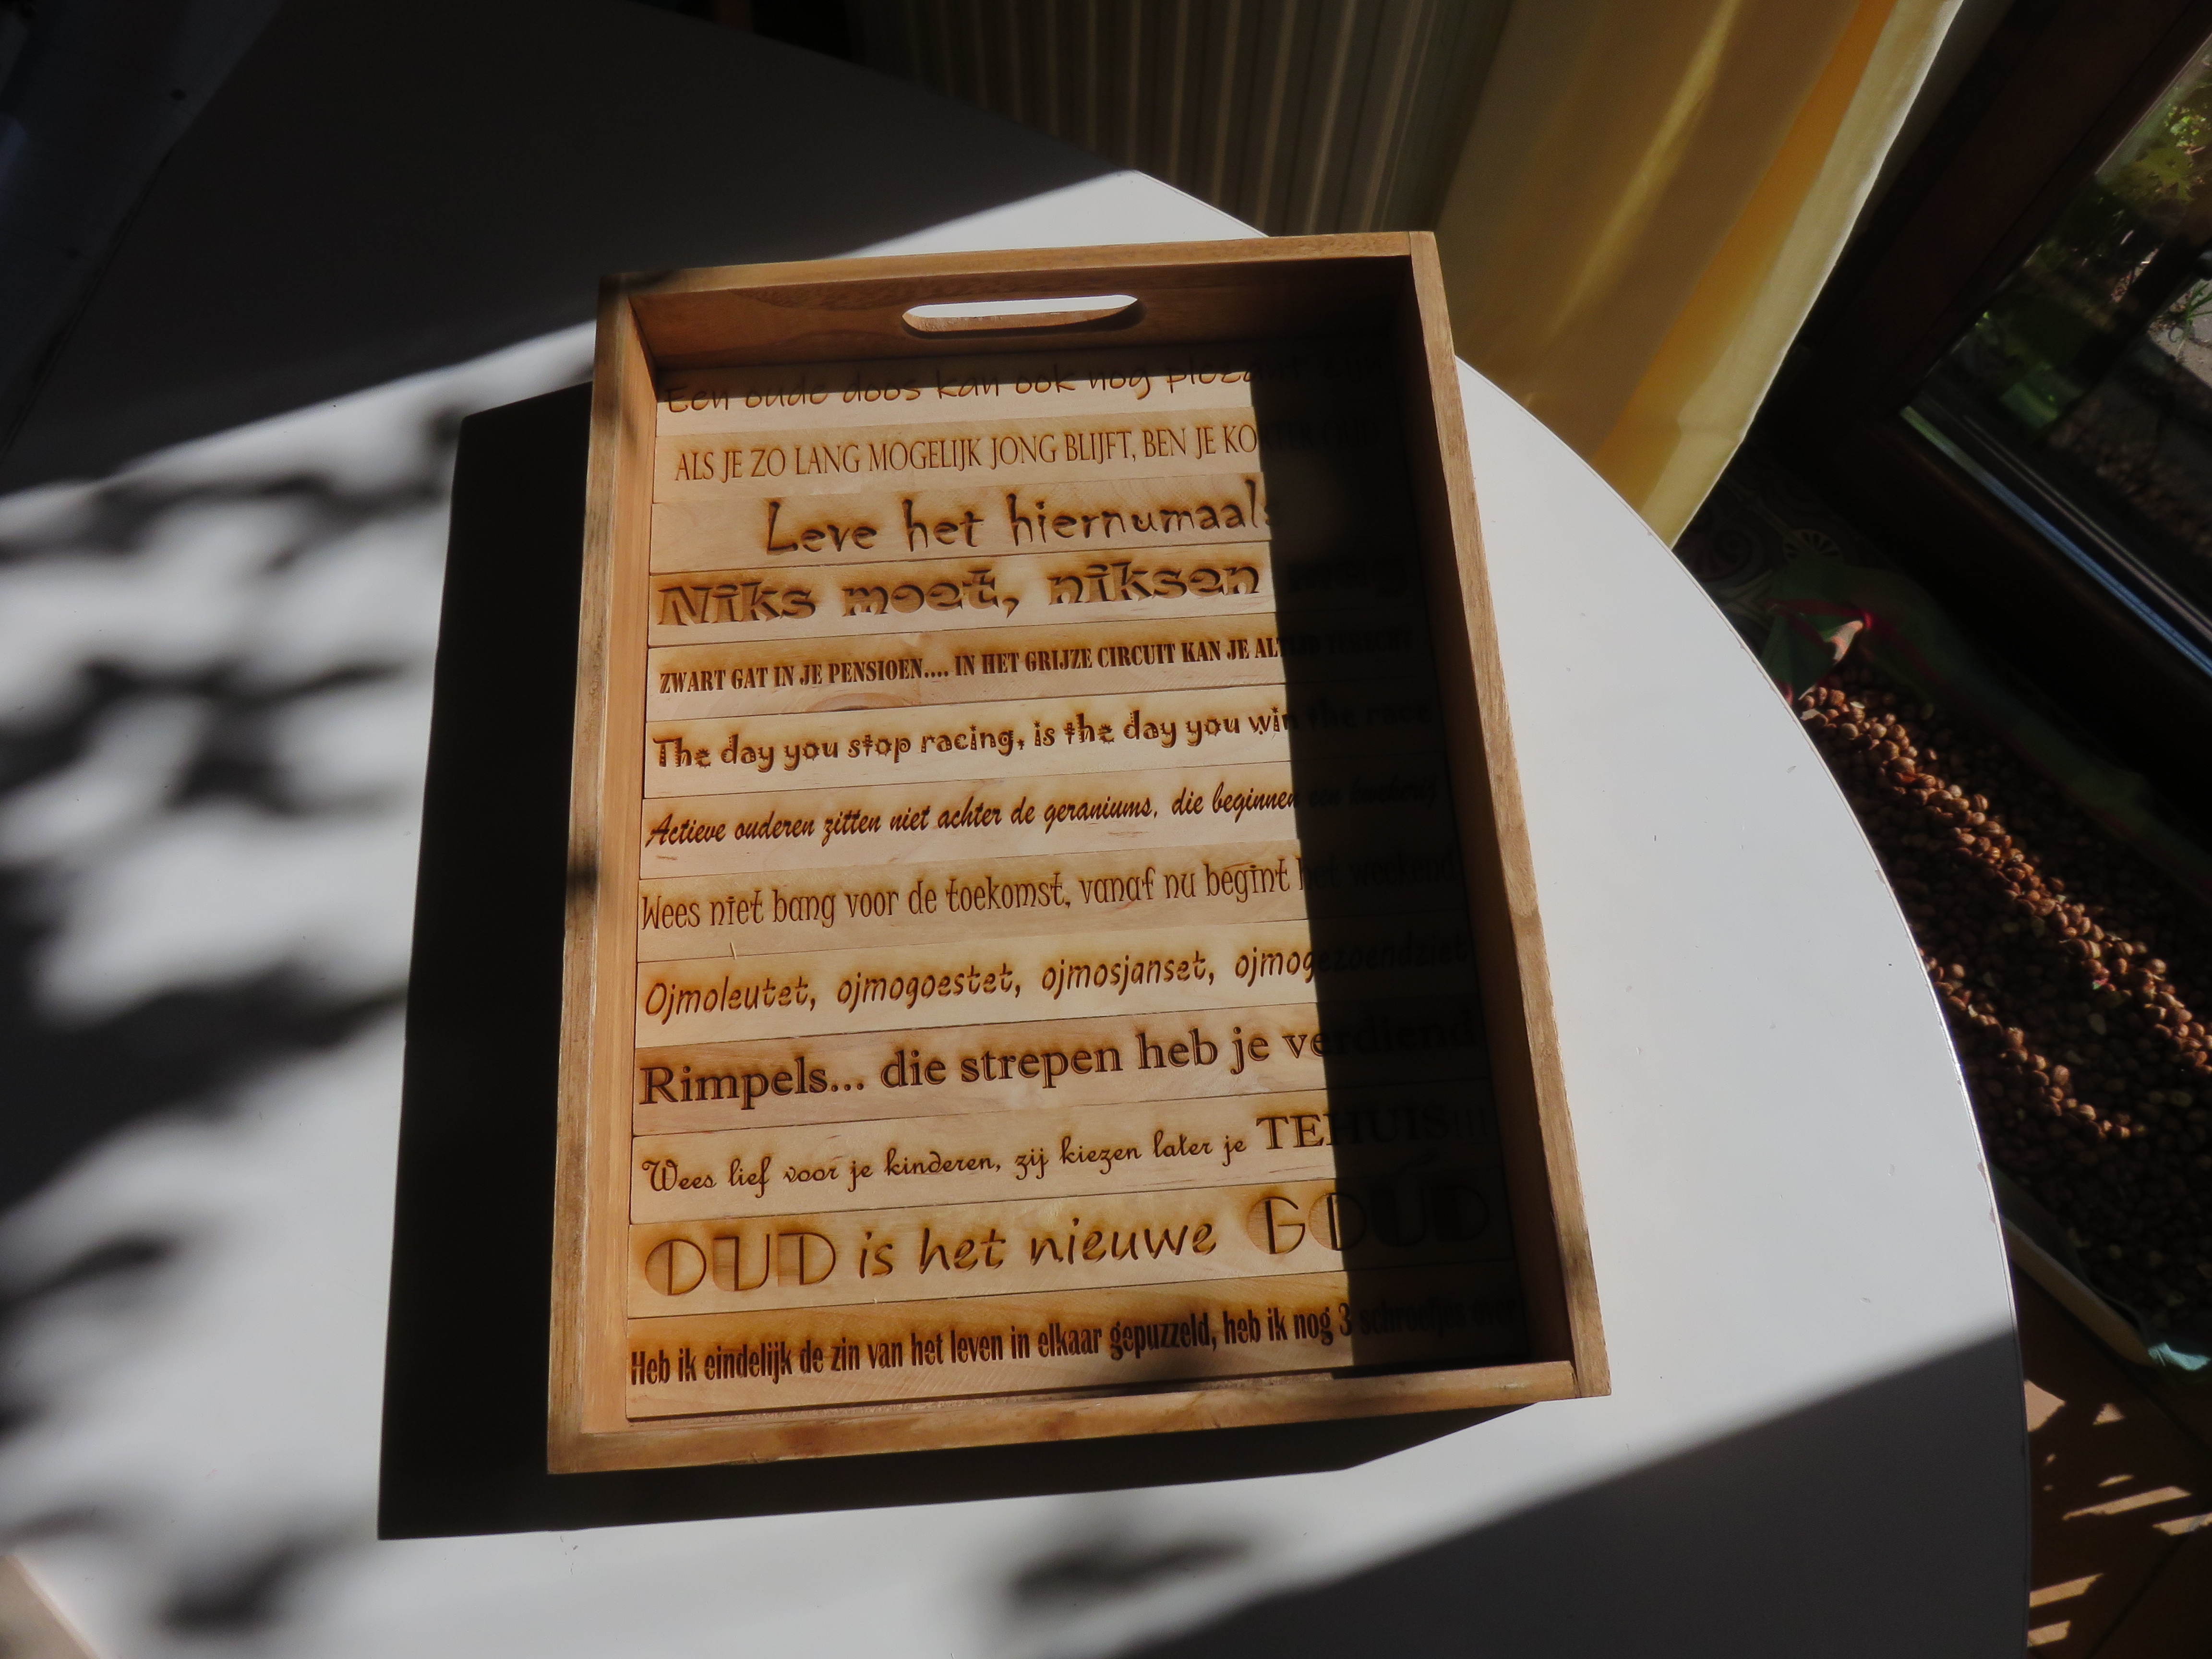 Een oude doos kan ook nog plezant zijn
ALS JE ZO LANG MOGELIJK JONG BLIJFT, BEN JE KORTER OUD
Leve het hiernumaals
Niks moet, niksen mag
ZWART GAT IN JE PENSIOEN.... IN HET GRIJZE CIRCUIT KAN JE ALTIJD TERECHT
The day you stop racing, is the day you win the race
Actieve ouderen zitten niet achter de geraniums, die beginnen een
Wees niet bang voor de toekomst, vanaf nu begint het weekend
Ojmoleutet, ojmogoestet, ojmosjanset, ojmogezoendziet
Rimpels... die strepen heb je verdiend
Wees lief voor je kinderen, zij kiezen later je TEHUIS(!)
OUD is het nieuwe GOUD
Heb ik eindelijk de zin van het leven in elkaar gepuzzeld, heb ik nog 3 schroefjes over